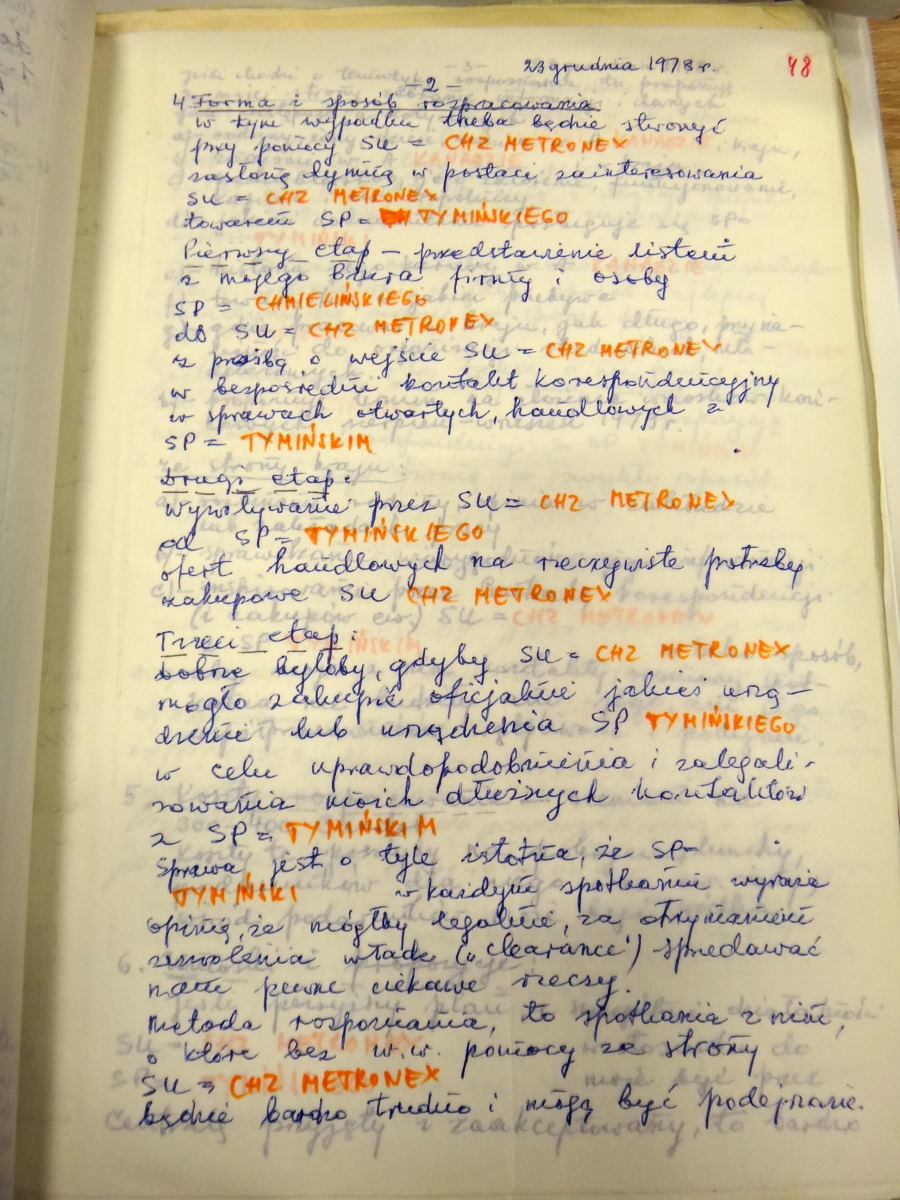 23 grudnia 1978 r.
48
- 2 -
4 Forma i sposób rozpracowania
w tym wypadku trzeba będzie stworzyć
przy pomocy SU = CHZ METRONEX
zasłonę dymną w postaci zainteresowania
SU = CHZ METRONEX
towarem SP = TYMIŃSKIEGO
Pierwszy etap - przedstawienie listem
z mojego biura firmy i osoby
SP = CHMIELIŃSKIEGO
do SU = CHZ METRONEX
z prośbą o wejście SU = CHZ METRONEX
w bezpośredni kontakt korespondencyjny
w sprawach otwartych, handlowych z
SP = TYMIŃSKIM
Drugi etap:
wywoływanie przez SU = CHZ METRONEX
od SP = TYMIŃSKIEGO
ofert handlowych na rzeczywiste potrzeby
zakupowe SU CHZ METRONEX
Trzeci etap:
dobrze byłoby, gdyby SU = CHZ METRONEX
mogło zakupić oficjalnie jakieś urzą-
dzenie lub urządzenia SP TYMIŃSKIEGO
w celu uprawdopodobnienia i zalegali-
zowania moich dłuższych kontaktów
z SP = TYMIŃSKIM
Sprawa jest o tyle istotna, że SP-
TYMIŃSKI w każdym spotkaniu wyraża
opinię, że mógłby legalnie, za otrzymaniem
zezwolenia władz („clearance") sprzedawać
nam pewne ciekawe rzeczy.
Metoda rozpoznania, to spotkania z nim,
o które bez w.w. pomocy ze strony
SU = CHZ METRONEX
będzie bardzo trudno i mogą być podejrzane.